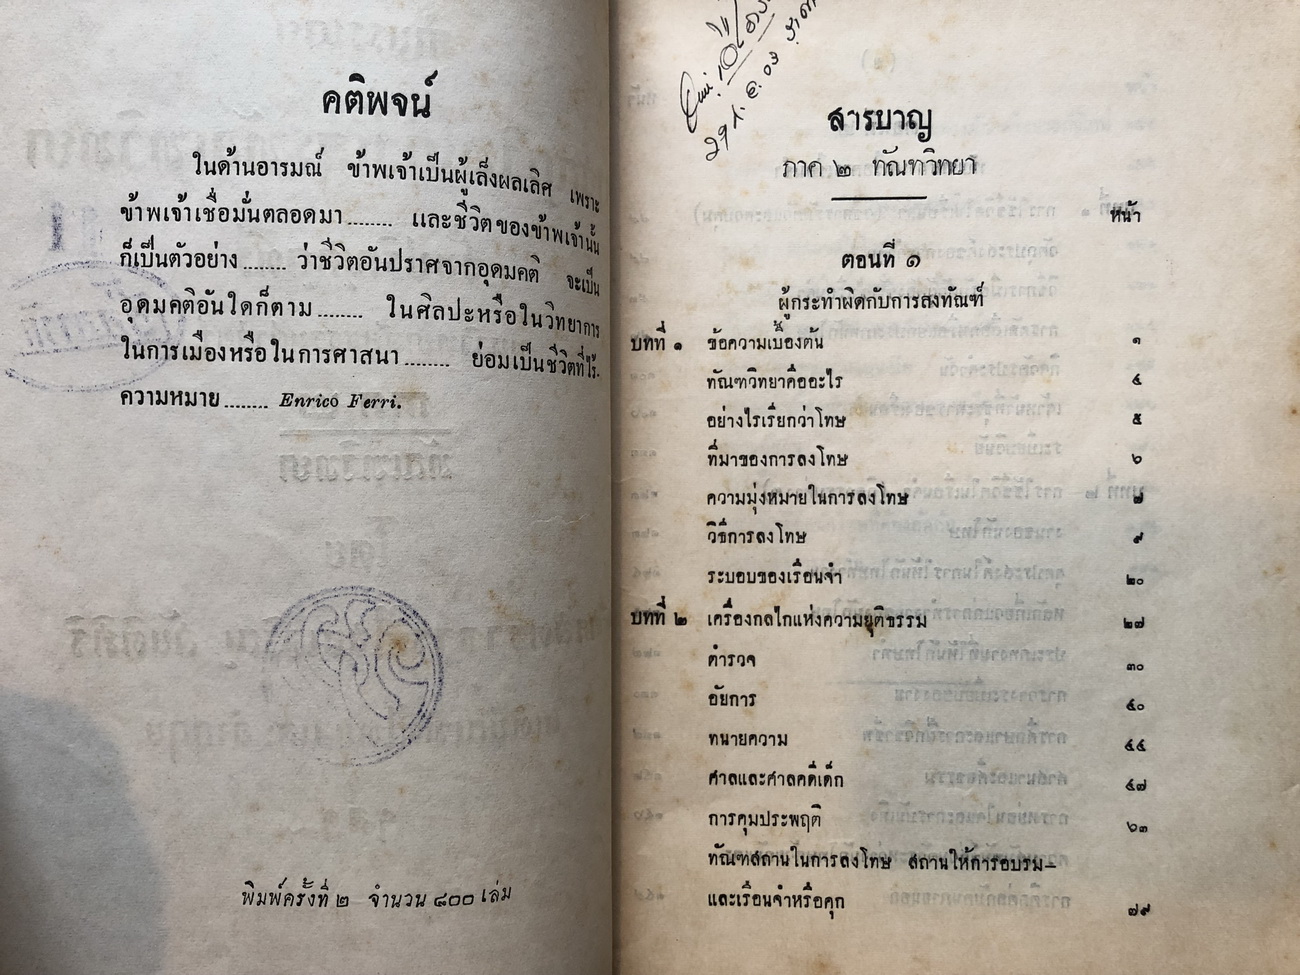 คติพจน์
ในด้านอารมณ์ ข้าพเจ้าเป็นผู้เล็งผลเลิศ เพราะ
ข้าพเจ้าเชื่อมั่นตลอดมา........ และชีวิตของข้าพเจ้านั้น
ก็เป็นตัวอย่าง........ ว่าชีวิตอันปราศจากอุดมคติ จะเป็น
อุดมคติอันใดก็ตาม........ ในศิลปะหรือในวิทยาการ
ในการเมืองหรือในการศาสนา........ ย่อมเป็นชีวิตที่ไร้-
ความหมาย........ Enrico Ferri.
พิมพ์ครั้งที่ ๒ จำนวน ๘๐๐ เล่ม
สารบาญ
ภาค ๒ ทัณฑวิทยา
หน้า
ตอนที่ ๑
ผู้กระทำผิดกับการลงทัณฑ์
บทที่ ๑ ข้อความเบื้องต้น ๑
ทัณฑวิทยาคืออะไร ๔
อย่างไรเรียกว่าโทษ ๕
ที่มาของการลงโทษ ๖
ความมุ่งหมายในการลงโทษ ๗
วิธีการลงโทษ ๙
ระบอบของเรือนจำ ๒๐
บทที่ ๒ เครื่องกลไกแห่งความยุติธรรม ๒๗
ตำรวจ ๓๐
อัยการ ๔๐
ทนายความ ๔๔
ศาลและศาลคดีเด็ก ๔๗
การคุมประพฤติ ๖๓
ทัณฑสถานในการลงโทษ สถานให้การอบรม-
และเรือนจำหรือคุก ๗๙